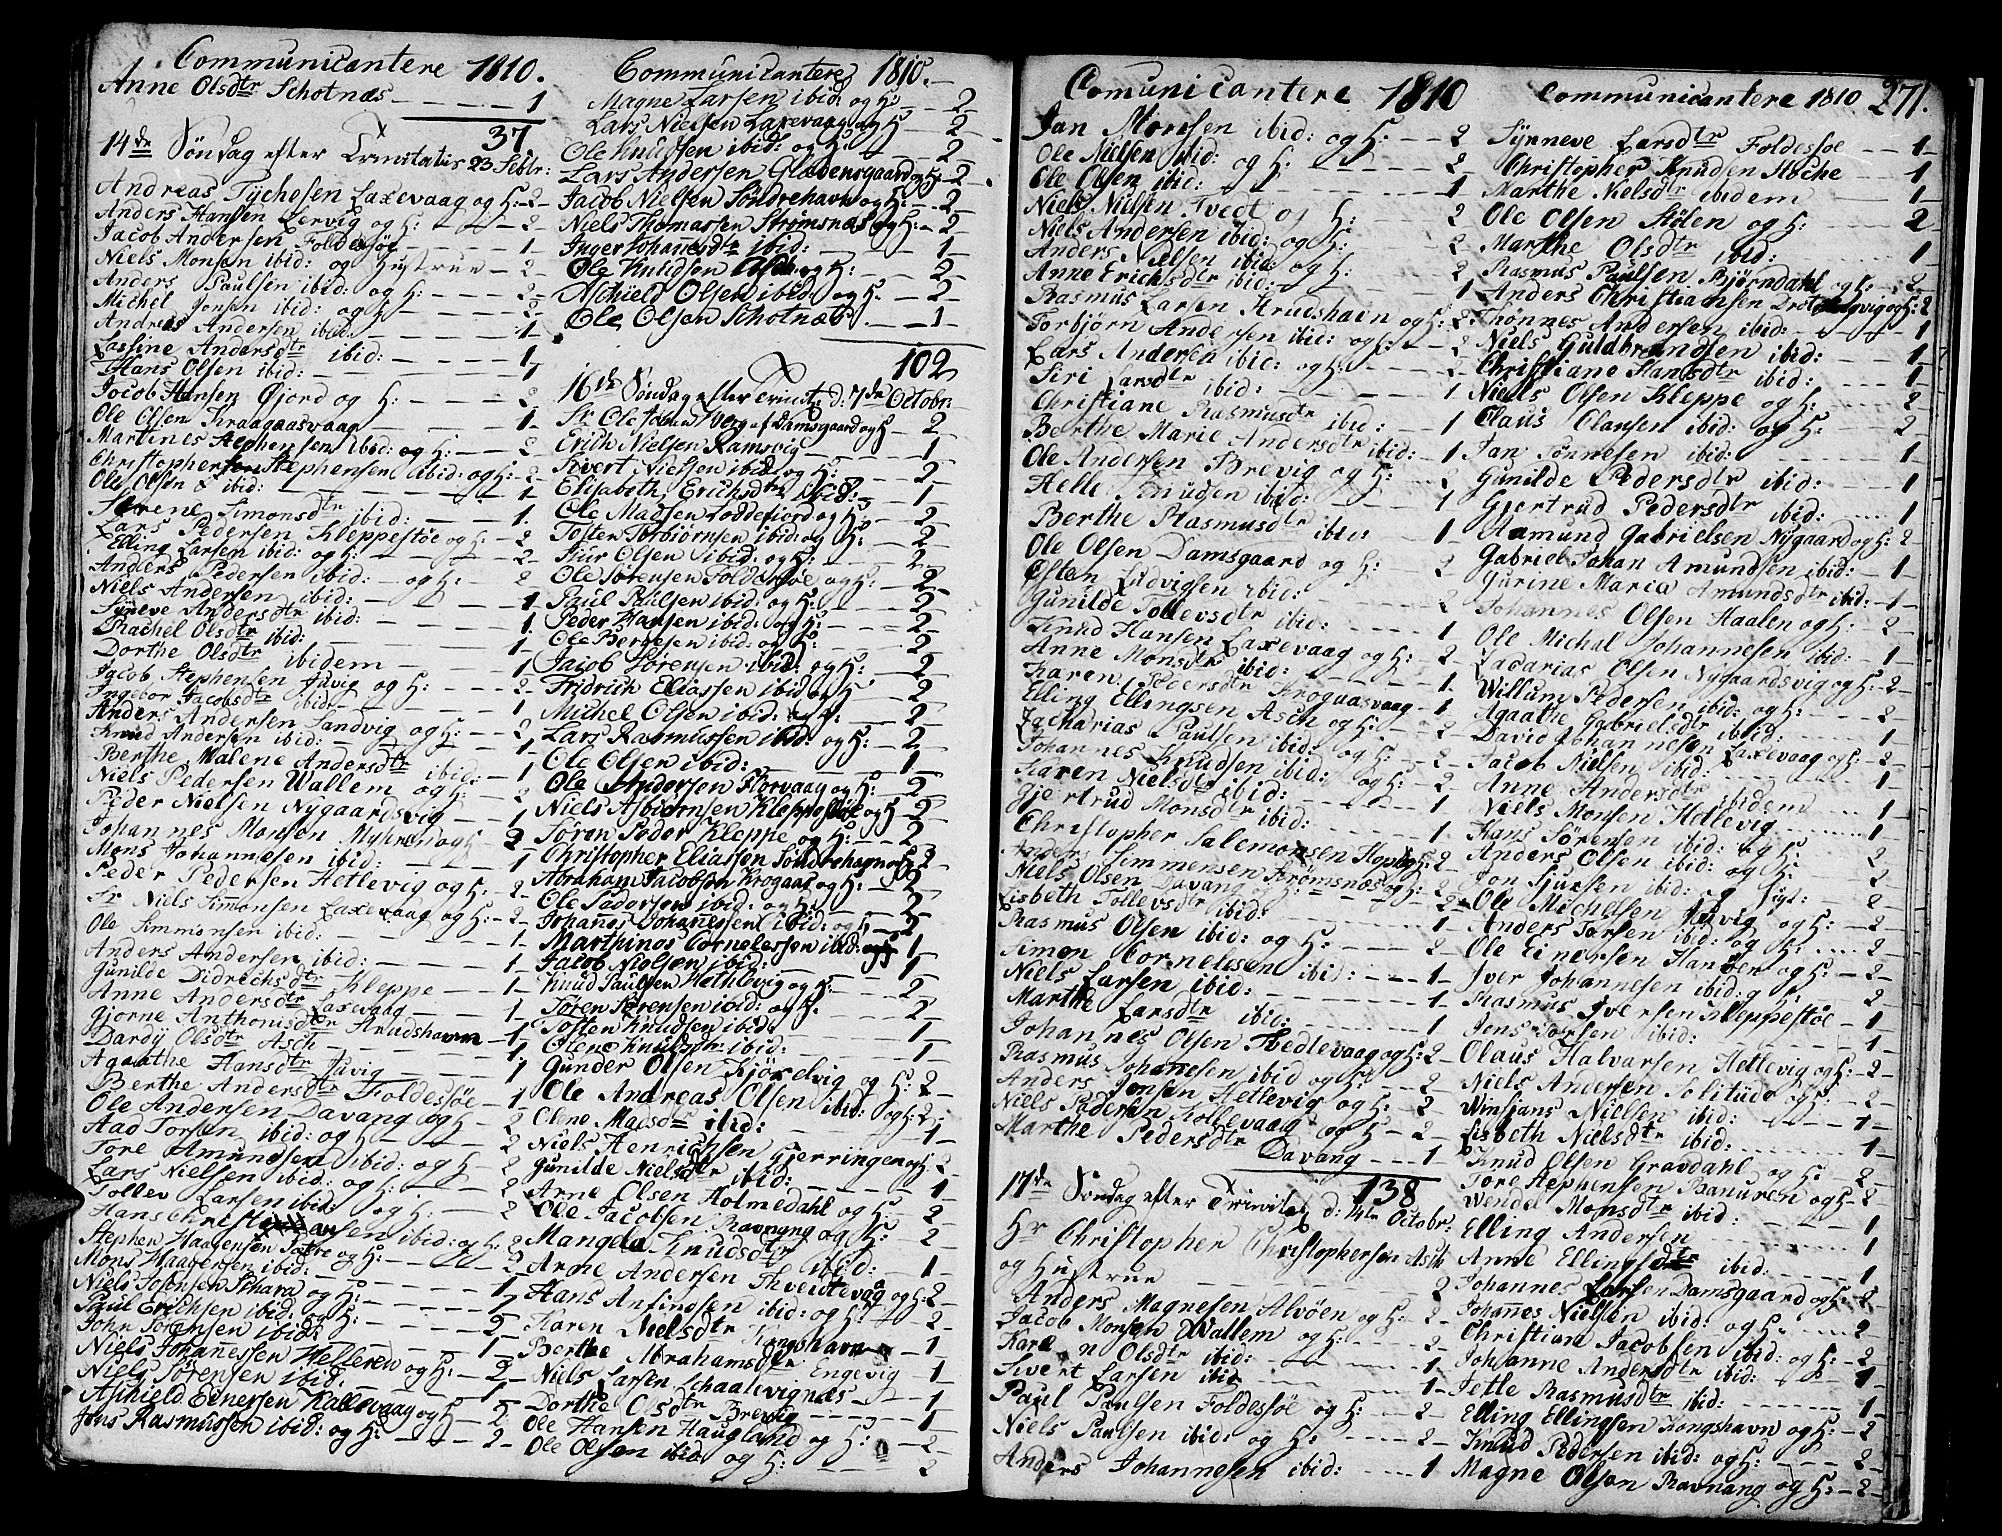 Communicantere 1810.
Anne Olsdtr Schotnæs - - - - 1
37.
14de Søndag efter Trinitatis 23 Septbr:
Andreas Tychesen Laxevaag og H: - 2
Anders Hansen Lervig og H: - - - 2
Jacob Andersen Foldesøe - - - 1
Niels Monsen ibid: og Hustrue - 2
Anders Paulsen ibid: og H: - - 2
Michel Jonsen ibid: og H - - 2
Andreas Andersen ibid: - - - 1
Andersdtr ibid: - - - 1
Hans Olsen ibid: - - - 1
Jacob Hansen Gjord og H: - - 2
Ole Olsen Kraagaasvaag - - 1
Martines Stephensen ibid: og H: - 2
Christophersen Stephensen ibid: og H: - 2
Ole Olsen ibid: - - - 1
Simonsdtr ibid: - - - 1
Lars Pedersen Kleppestøe - - - 2
Elling Larsen ibid: og H: - - 2
Anders Pedersen ibid: - og H: - 2
Niels Andersen ibid: - - - 1
Syneve Andersdtr ibid: - - - 1
Rachel Olsdtr ibid: - - - 1
Dorthe Olsdtr ibidem - - - 1
Jacob Stephensen Juvig og H: - - 2
Ingebor Jacobsdtr ibid: - - - 1
Anders Andersen Sandvig og H: - - 2
Knud Andersen ibid: - - - 1
Berthe Malene Andersdtr ibid: - - 1
Niels Pedersen Wallem og H: - - 2
Peder Nielsen Nygaardsvig - - 1
Johannes Monsen Myhren og H: - 2
Mons Johannesen ibid: - - - 1
Peder Pedersen Hetlevig og H: - 2
Sr Niels Simonsen Laxevaag og H: - 2
Ole Simmonsen ibid: - - - 1
Anders Andersen ibid: - - - 1
Gunilde Didrechsdtr Kleppe - - 1
Anne Andersdtr Laxevaag - - 1
Gjorne Anthonisdtr Knudshavn - 1
Dardy Olsdtr Asch - - - 1
Agaathe Hansdtr Juvig - - - 1
Berthe Andersdtr Foldessøe - 1
Ole Andersen Davang og H - - 2
Aad Torsen ibid: og H - - 2
Tore Amundsen ibid: og H - 2
Lars Nielsen ibid: og H: - - 2
Tollev Larsen ibid: og H: - - 2
Hans ibid: og H: - - 2
Stephen Haagensen og H: - - 2
Mons Haagensen ibid: - - - 1
Niels og H: - - - 2
Paul Erichsen ibid: og H: - - 2
John Sørensen ibid: - - - 1
Niels Johanessen og H: - 2
Niels Sørensen ibid: - - - 1
Aschield Einersen Kallevaag og H: - 2
Jens Rasmussen ibid: og H: - - 2
Communicantere 1810.
Magne Larsen ibid: og H: - 2
Lars Nielsen Laxevaag og H - 2
Ole Knudsen ibid: og H: - 2
Lars Andersen Gladensgaard og H - 2
Jacob Nielsen Søndrehavn og H: - 2
Niels Thomassen Strømsnæs og H: - 2
Inger Johannesdtr ibid: - - 1
Ole Knudsen Asch og H: - - 2
Aschield Olsen ibid: og H: - 2
Ole Olsen Schotnæs - - 1
102
16de Søndag efter Trinit: d: 7de Octobr:
Sr Ole af Damsgaard og H - 2
Erich Nielsen Ramsvig - - 1
Sivert Nielsen ibid: og H: - 2
Elisabeth Erichsdtr ibid: - 1
Ole Madsen Loddefjord og H: - 2
Tosten Torbiørnsen ibid: og H: - 2
Siur Olsen ibid: og H: - - 2
Ole Sørensen Foldessøe og H: - 2
Paul Paulsen ibid: og H: - - 2
Peder Hansen ibid: og H: - - 2
Ole Berntsen ibid: og H: - 2
Jacob Sørensen ibid: og H: - 2
Fridrich Eliassen ibid og H - 2
Michel Olsen ibid: og H: - 2
Lars Rasmussen ibid: og H: - 2
Ole Olsen ibid: - - - 1
Ole Andersen Florvaag og H: - 2
Niels Asbiørnsen Kleppestøe og H: - 2
Søren Peder Kleppe og H: - - 2
Christopher Eliassen Søndrehagn og H: 2
Abraham Jacobsen Krogaas og H: - 2
Ole Pedersen ibid: og H: - 2
Johannes Johanessen ibid: og H: - 2
Marthinos Cornelessen ibid: - 1
Jacob Nielsen ibid: - - 1
Knud Paulsen Hethlevig og H: - 2
Søren Sørensen ibid: og H: - 2
Tosten Knudsen ibid: - - 1
Olene Knudsdtr ibid: - - 1
Gunder Olsen Kjørelvig og H: - 2
Ole Andreas Olsen ibid: og H: 2
Olene Madsdtr ibid: - - - 1
Niels Henrichsen Gjerringen og H: 2
Gunilde Nielsdtr ibid: - - 1
Arne Olsen Holmedahl og H: - 2
Ole Jacobsen Ravnang og H: - 2
Mangela Knudsdtr ibid: - 1
Arne Andersen Thveitevog og H: - 2
Hans Anfindsen ibid: og H: - 2
Karen Nielsdtr Kongshavn - 1
Berthe Abrahamsdtr Engevig - 1
Niels Larsen Schaalevignæs - 1
Dorthe Olsdtr Brevig - - - 1
Ole Hansen Haugland og H: - 2
Ole Olsen ibid: og H: - - 2
Comunicantere 1810
Jan Monsen ibid: og H: - - 2
Ole Nielsen ibid: og H: - - 2
Ole Olsen ibid: - - - 1
Niels Nielsen Tvedt og H: - - 2
Niels Andersen ibid: og H: - - 2
Anders Nielsen ibid: og H: - - 2
Anne Erichsdtr ibid: - - - 1
Rasmus Larsen Knudshavn og H: - 2
Torbjørn Andersen ibid: og H: - 2
Lars Andersen ibid: og H: - - 2
Siri Larsdtr ibid: - - - 1
Christiane Rasmusdtr ibid: - 1
Berthe Marie Andersdtr ibid: 1
Ole Andersen Brevig og H: - 2
Helle Knudsen ibid: - - - 1
Berthe Rasmusdtr ibid: - - 1
Ole Olsen Damsgaard og H: - 2
Østen Ludvigsen ibid: - - 2
Gunilde Tollevsdtr ibid: - - 1
Knud Hansen Laxevaag og H: - 2
Anne Monsdtr ibid: - - - 1
Karen Pedersdtr Krogaasvaag - 1
Elling Ellingsen Asch og H: - - 2
Zacharias Paulsen ibid: og H: - - 2
Johannes Knudsen ibid: og H: - 2
Karen Nielsdtr ibid: - - - 1
Gjertrud Monsdtr ibid: - - - 1
Christopher Salemonsen Hop og H: - 2
Anders Simmensen Strømsnæs og H: - 2
Niels Olsen Davang og H: - - 2
Lisbeth Tollevsdtr ibid: - - - 1
Rasmus Olsen ibid: og H: - - 2
Simon Cornelesen ibid: - - 1
Niels Larsen ibid: - - - 1
Marthe Larsdtr ibid: - - - 1
Johannes Olsen Hedlevaag og H: - 2
Rasmus Johanesen ibid og H: - - 2
Anders Jonsen Hetlevig og H: - 2
Niels Pedersen Kollevaag og H - 2
Marthe Pedersdtr Davang - - 1
138
17de Søndag efter Trinitat: d: 14de Octobr:
Hr Christopher Christophersen Asch
og Hustrue - - - 2
Anders Magnesen Alvøen og H: - 2
Jacob Monsen Wallem og H: - - 2
Karen Olsdtr ibid: - - - 1
Sivert Larsen ibid - - - 1
Paul Paulsen Foldessøe og H: - 2
Niels Paulsen ibid: og H: - - 2
Anders Johannesen ibid: - - 1
Communicantere 1810 271.
Synneve Larsdtr Foldessøe - - 1
Christopher Knudsen Høche - 1
Marthe Nielsdtr ibidem - - 1
Ole Olsen Stølen og H: - - 2
Marthe Olsdtr ibid: - - 1
Rasmus Paulsen Bjørndahl og H: - 2
Anders Christiansen og H: 2
Thønnes Andersen ibid: - - - 1
Niels Guldbrandsen ibid: - - 1
Christiane Hansdtr ibid: - - 1
Niels Olsen Kleppe og H: - - 2
Claus Clausen ibid: og H: - - 2
Jan Tønnesen ibid: - - - 1
Gunilde Pedersdtr ibid: - - 1
Gjertrud Pedersdtr ibid: - - 1
Aamund Gabrielsen Nygaard og H: - 2
Gabriel Johan Amundsen ibid: - 1
Gurine Maria Amundsdtr ibid: - 1
Johannes Olsen Haalen og H: - 2
Ole Michal Johannesen ibid: - 1
Zacarias Olsen Nygaardsvig og H: - 2
Willum Pedersen ibid: og H: - - 2
Agaathe Gabrielsdtr ibid: - - 1
David Johannesen Laxevaag og H: - 2
Jacob Nielsen ibid: - - - 1
Anne Andersdtr ibidem - - 1
Niels Monsen Hetlevig - - - 1
Hans Sørensen ibid: og H: - - 2
Anders Olsen ibid: og H: - - 2
Jon Sjursen ibid: og Pigt: - - 2
Ole Michelsen Juvig og H: - - 2
Anders Torsen ibid: og H: - - 2
Ole Einersen Hanøen og H: - 2
Iver Johannesen ibid: og H: - 2
Rasmus Iversen Kleppestøe - 1
Jens Torsen ibid: - - - 1
Olaus Halvarsen Hetlevig og H: - 2
Niels Andersen Solitude og H: - 2
Winsjans Nielsen ibid: - - 1
Lisbeth Nielsdtr ibid: - - - 1
Knud Olsen Gravdahl og H: - 2
Tore Stephensen Banuren og H: - 2
Wendel Monsdtr ibid: - - 1
Elling Andersen - - - 1
Anne Ellingsdtr ibid: - - - 1
Johannes Larsen Damsgaard og H: - 2
Johannes Nielsen ibid: og H: - 2
Christian Jacobsen ibid: og H: - 2
Johanne Andersdtr ibid: - - 1
Jetle Rasmusdtr ibid: - - - 1
Elling Ellingsen Kongshavn og H: - 2
Knud Pedersen ibid: og H: - - 2
Magne Olsen Ravnang og H: - 2